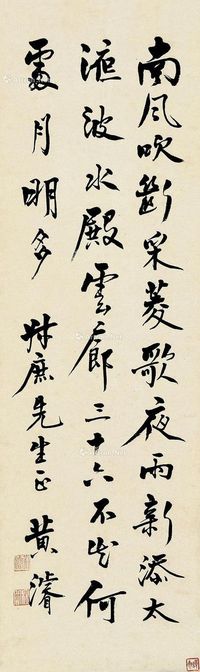 南風吹斷采菱歌夜雨新添太
液波水殿雲廊三十六不知何
處月明多
叔廡先生正 黄濬